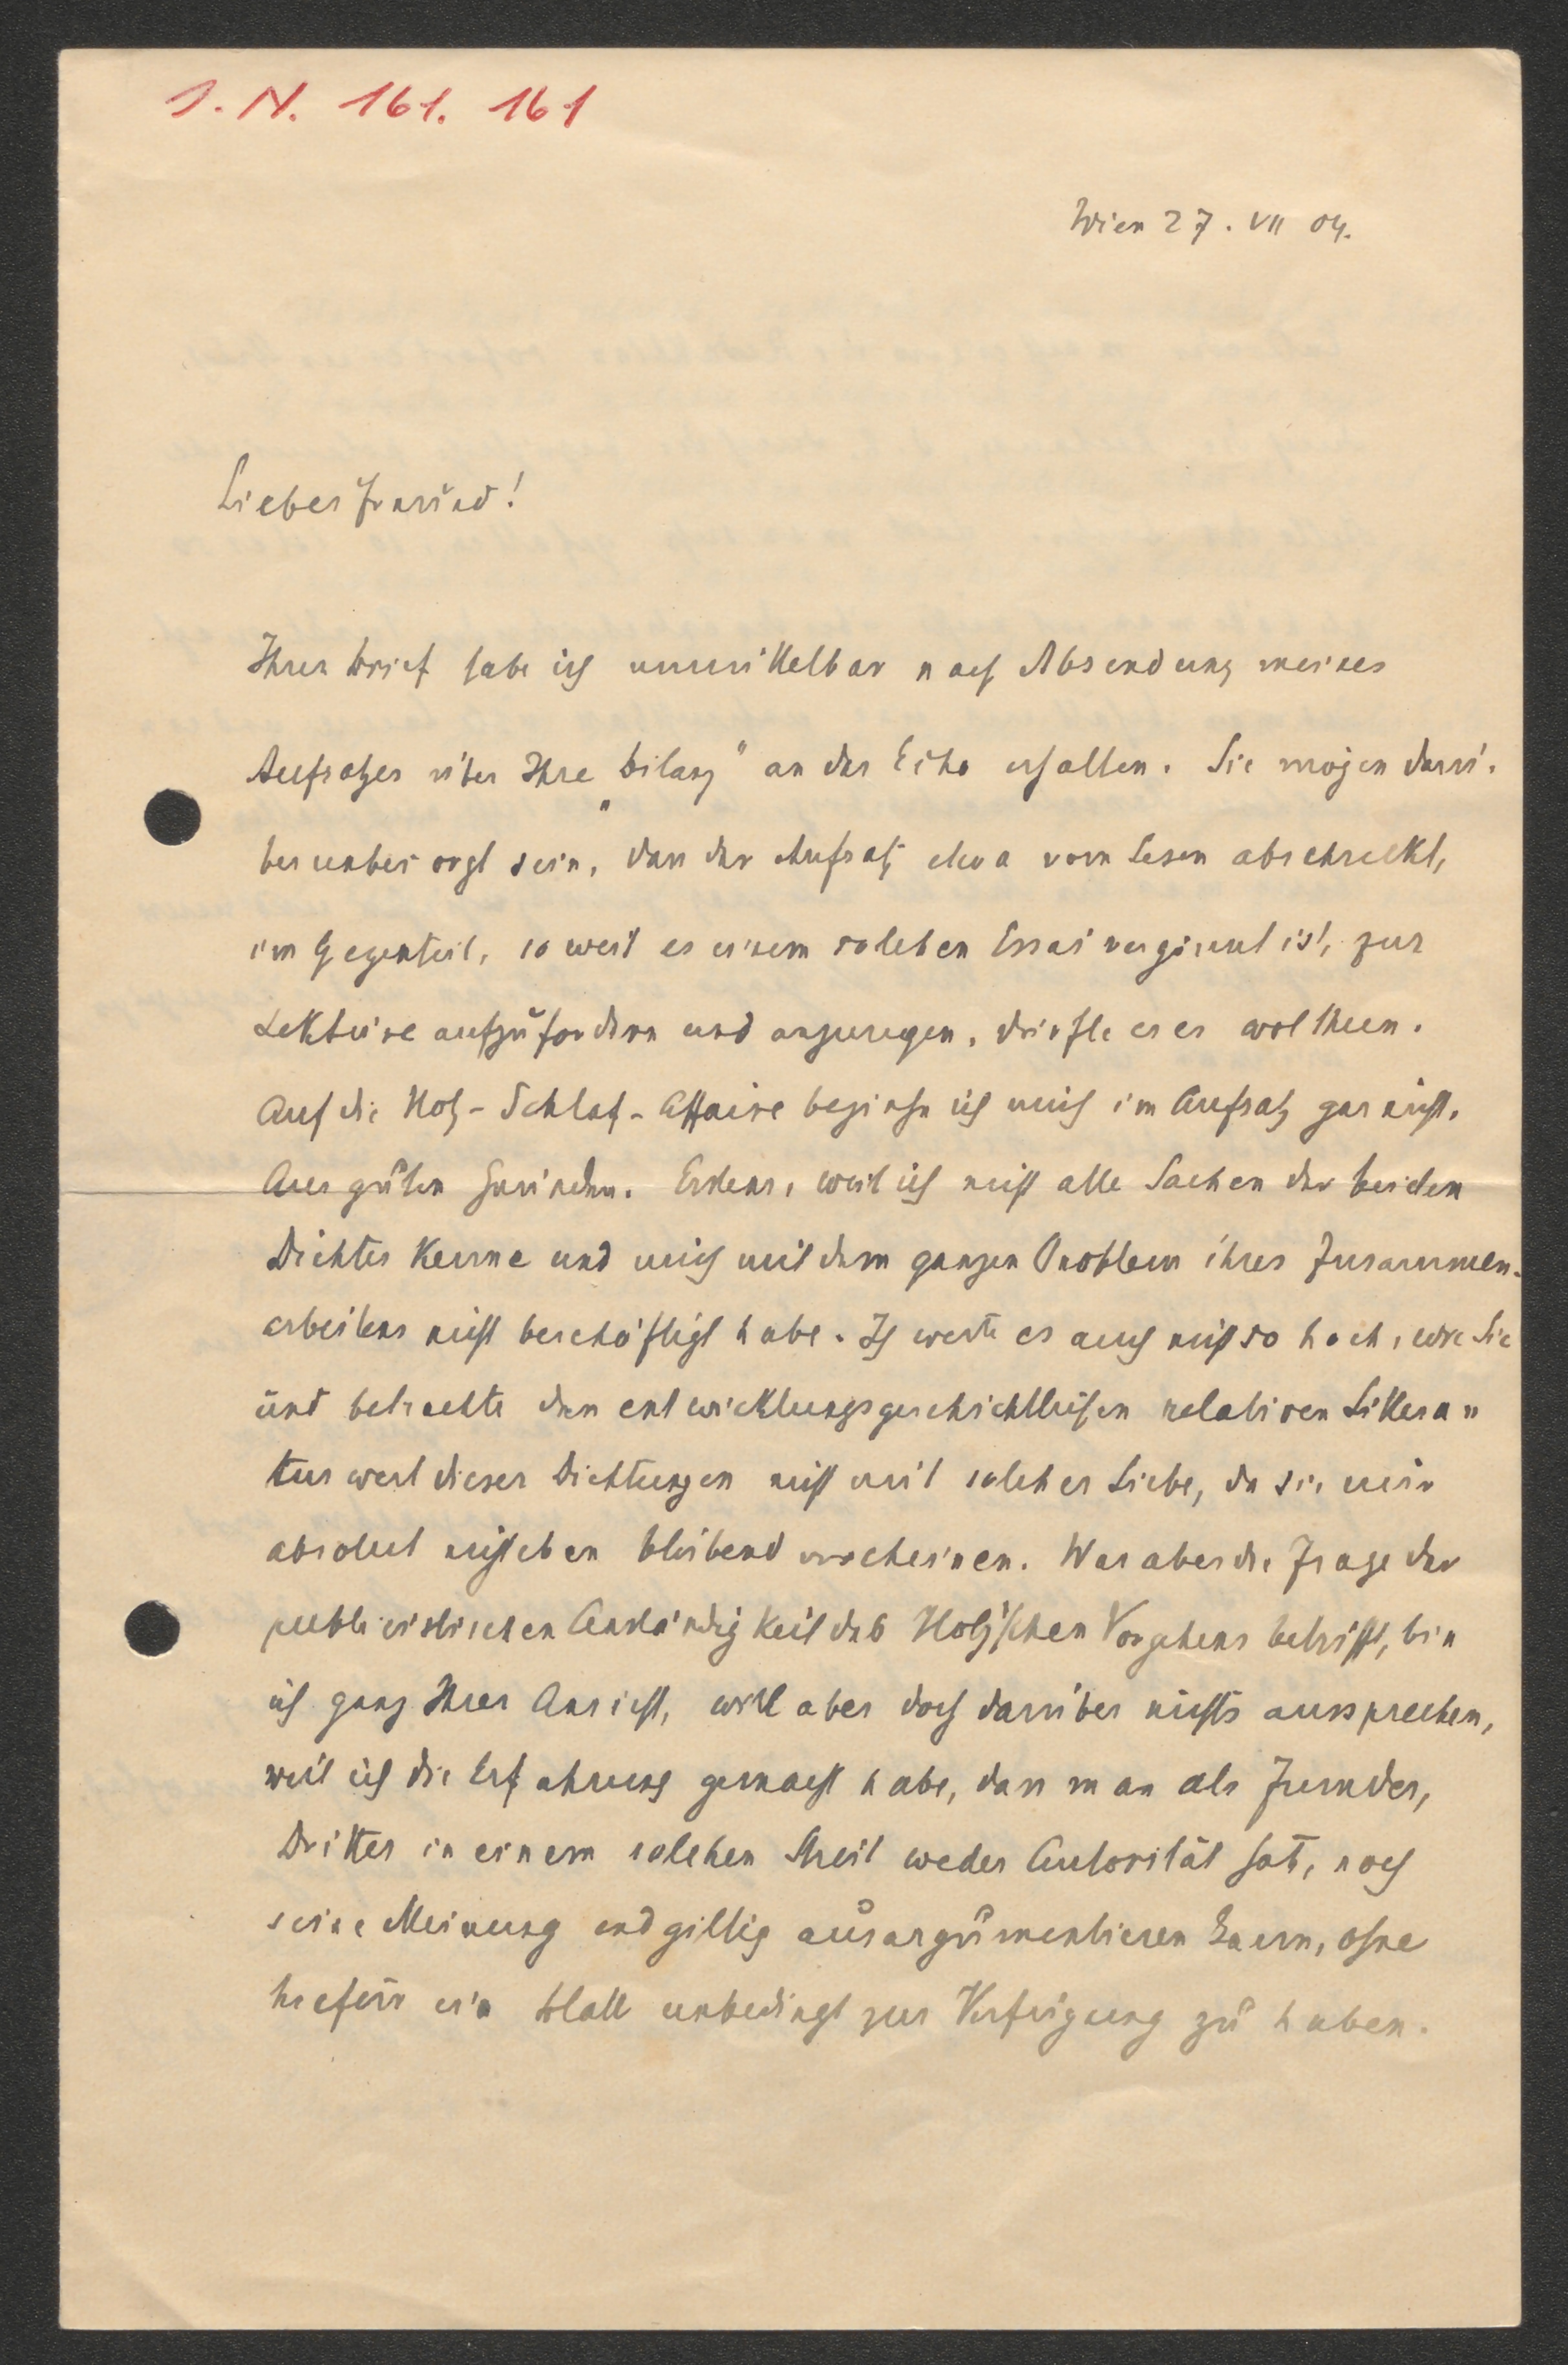 I. N. 161.161
Wien 27. VII 04.
Lieber Freund!
Ihren Brief habe ich unmittelbar nach Absendung meines
Aufsatzes über Ihre „Bilanz" an das Echo erhalten. Sie mögen darü-
ber unbesorgt sein, dass der Aufsatz etwa vom Lesen abschreckt,
im Gegenteil, so weit es einem solchen Essai vergönnt ist, zur
Lektüre aufzufordern und anzuregen, dürfte er es wol thun.
Auf die Holz-Schlaf-Affaire beziehe ich mich im Aufsatz gar nicht.
Aus guten Gründen. Erstens, weil ich nicht alle Sachen der beiden
Dichter kenne und mich mit dem ganzen Problem ihres Zusammen-
arbeitens nicht beschäftigt habe. Ich werte es auch nicht so hoch, wie Sie
und betrachte den entwicklungsgeschichtlichen relativen Littera-
turwert dieser Dichtungen nicht mit solcher Liebe, da sie mir
absolut nicht eben bleibend erscheinen. Was aber die Frage der
publicistischen Anständigkeit des Holz'schen Vorgehens betrifft, bin
ich ganz Ihrer Ansicht, will aber doch darüber nichts aussprechen,
weil ich die Erfahrung gemacht habe, dass man als Fremder,
Dritter in einem solchen Streit weder Autorität hat, noch
seine Meinung endgiltig ausargumentieren kann, ohne
hiefür ein Blatt unbedingt zur Verfügung zu haben.